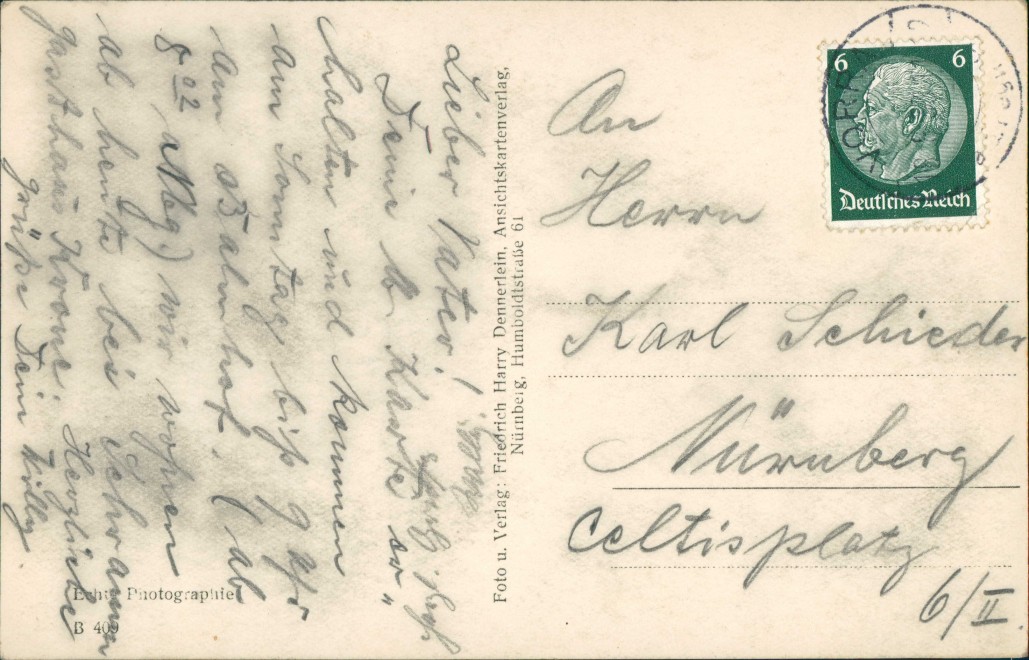 Lieber Vater!
Deine l. Karte er=
halten und kommen
am Sonntag bis 9 Uhr
am Bahnhof. (ab
8 02 Nbg) wir wohnen
ab heute bei Schramm
Gasthaus Krone. Herzliche
Grüße Dein Willy
Foto u. Verlag: Friedrich Harry Dennerlein, Ansichtskartenverlag,
Nürnberg, Humboldtstraße 61
Echte Photographie
B 409
6 6
Deutsches Reich
An
Herrn
Karl Schieder
Nürnberg
Celtisplatz
6/II.